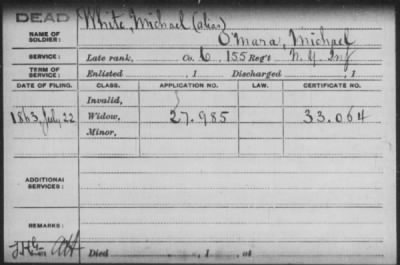 DEAD White, Michael (alias)
NAME OF SOLDIER: O'Mara, Michael
SERVICE: Late rank, Co. G 155 Reg't N.Y. Inf
TERM OF SERVICE: Enlisted , 1 Discharged , 1
DATE OF FILING. CLASS. APPLICATION NO. LAW. CERTIFICATE NO.
Invalid,
1863, July, 22 Widow, 27.985 33.064
Minor,
ADDITIONAL SERVICES:
REMARKS:
Died , 1 , at